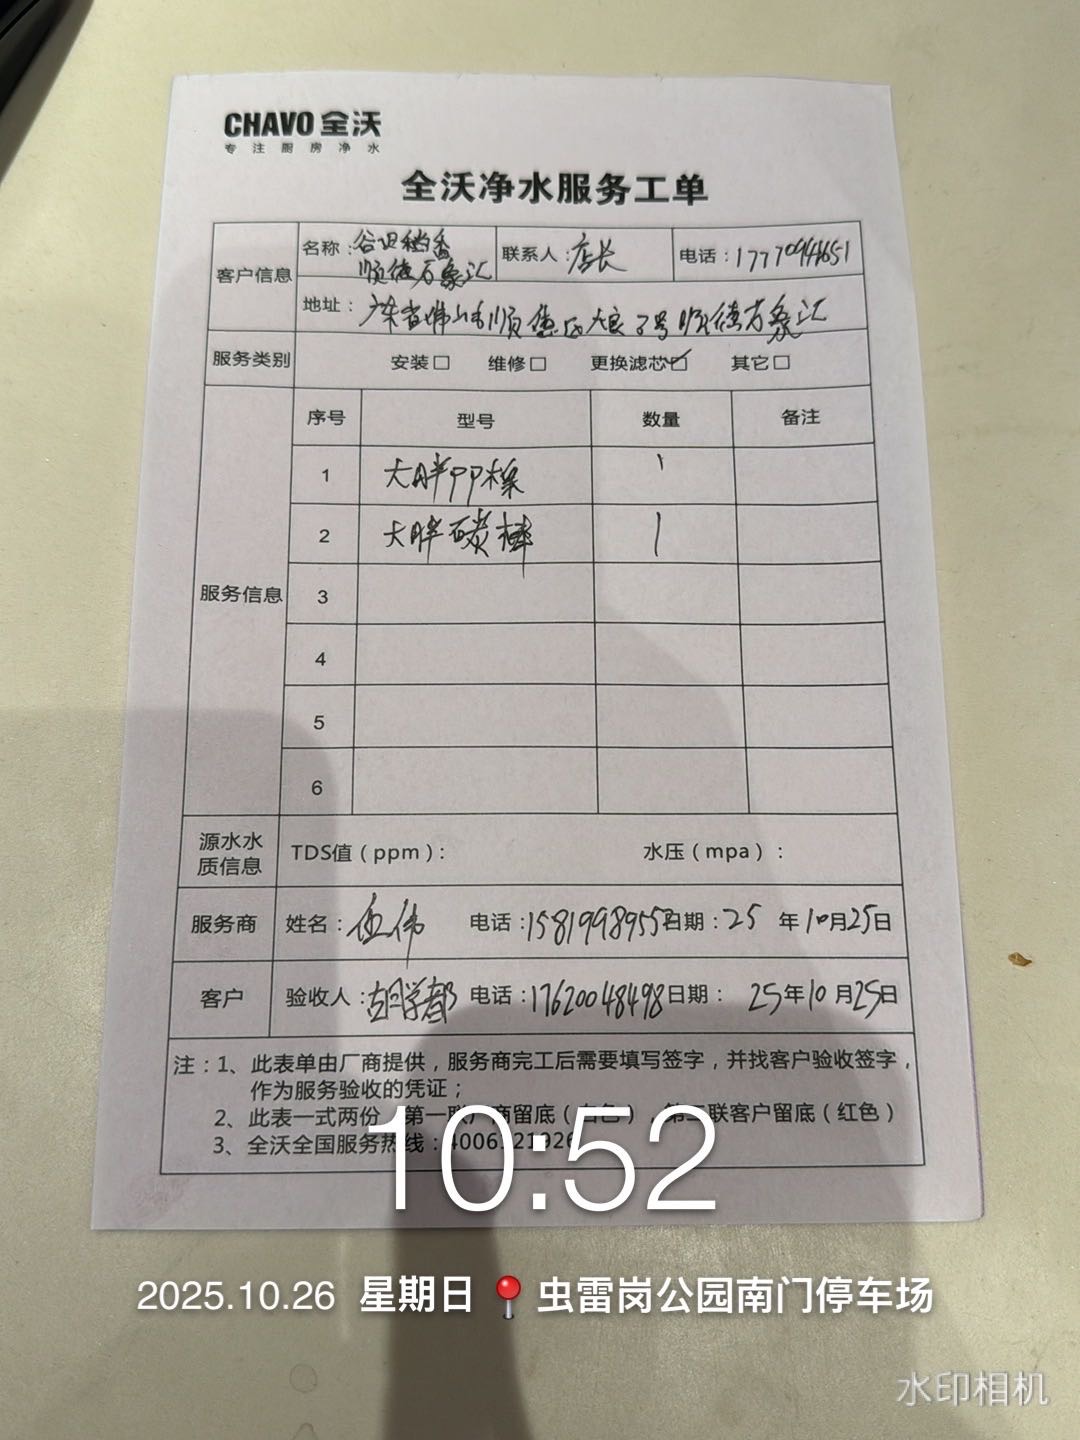 CHAVO 全沃
专注厨房净水
全沃净水服务工单
客户信息 名称：谷田稻香 联系人：店长 电话：17770944651
顺德万象汇
地址：广东省佛山市顺德区大良 号顺德万象汇
服务类别 安装□ 维修□ 更换滤芯☑ 其它□
服务信息 序号 型号 数量 备注
1 大胖PP棉 1
2 大胖碳棒 1
3
4
5
6
源水水质信息 TDS值（ppm）： 水压（mpa）：
服务商 姓名：伍伟 电话：15819998955 日期：25年10月25日
客户 验收人：胡学都 电话：17620048498 日期：25年10月25日
注：1、此表单由厂商提供，服务商完工后需要填写签字，并找客户验收签字，
作为服务验收的凭证；
2、此表一式两份，第一联厂商留底（白色），第二联客户留底（红色）
3、全沃全国服务热线：
10:52
2025.10.26 星期日 📍虫雷岗公园南门停车场
水印相机